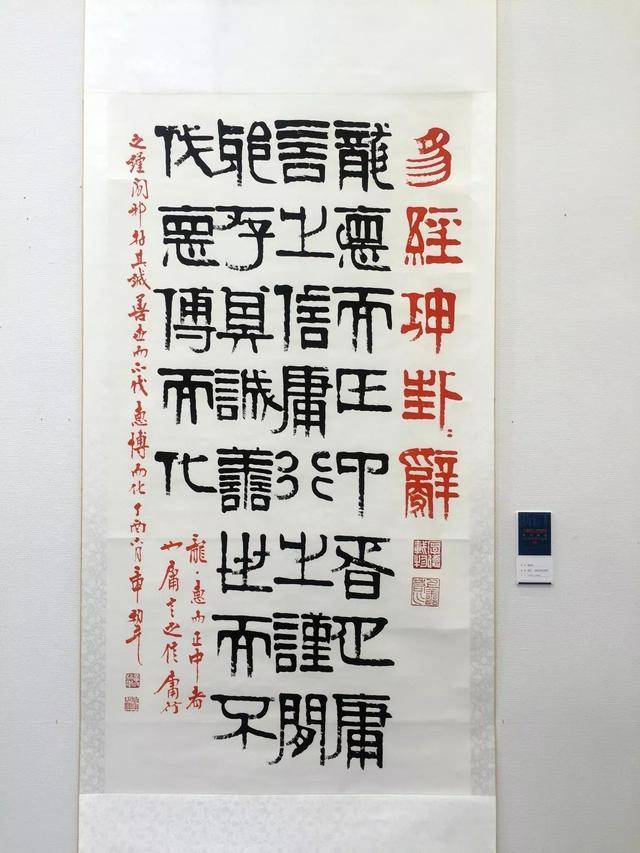 易經坤卦辭
龍悳而正中者也庸
言之信庸行之謹閒
邪存其誠善世而不
伐悳博而化
龍悳而正中者
也庸言之信庸行
之謹閑邪存其誠善世而不伐悳博而化丁酉六月章